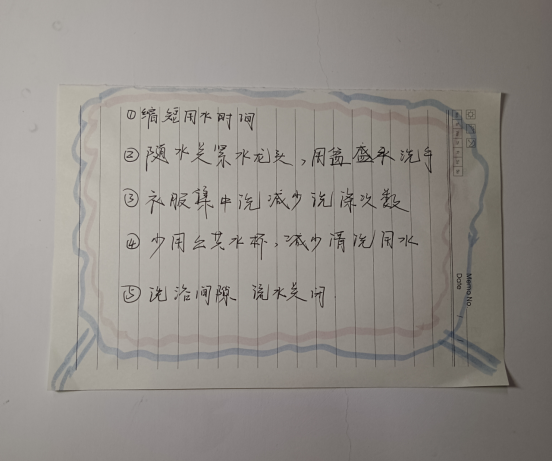 ①缩短用水时间
②随水关紧水龙头,用盆盛水洗手
③衣服集中洗减少洗涤次数
④少用公共水杯,减少清洗用水
⑤洗浴间隙 流水关闭
Memo No
Date